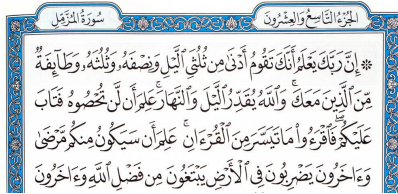 الجزء التاسع والعشرون
سورة المزمل
۞ إِنَّ رَبَّكَ يَعْلَمُ أَنَّكَ تَقُومُ أَدْنَىٰ مِن ثُلُثَيِ ٱلَّيْلِ وَنِصْفَهُۥ وَثُلُثَهُۥ وَطَآئِفَةٌ
مِّنَ ٱلَّذِينَ مَعَكَۚ وَٱللَّهُ يُقَدِّرُ ٱلَّيْلَ وَٱلنَّهَارَۚ عَلِمَ أَن لَّن تُحْصُوهُ فَتَابَ
عَلَيْكُمْۖ فَٱقْرَءُوا۟ مَا تَيَسَّرَ مِنَ ٱلْقُرْءَانِۚ عَلِمَ أَن سَيَكُونُ مِنكُم مَّرْضَىٰ
وَءَاخَرُونَ يَضْرِبُونَ فِى ٱلْأَرْضِ يَبْتَغُونَ مِن فَضْلِ ٱللَّهِۙ وَءَاخَرُونَ